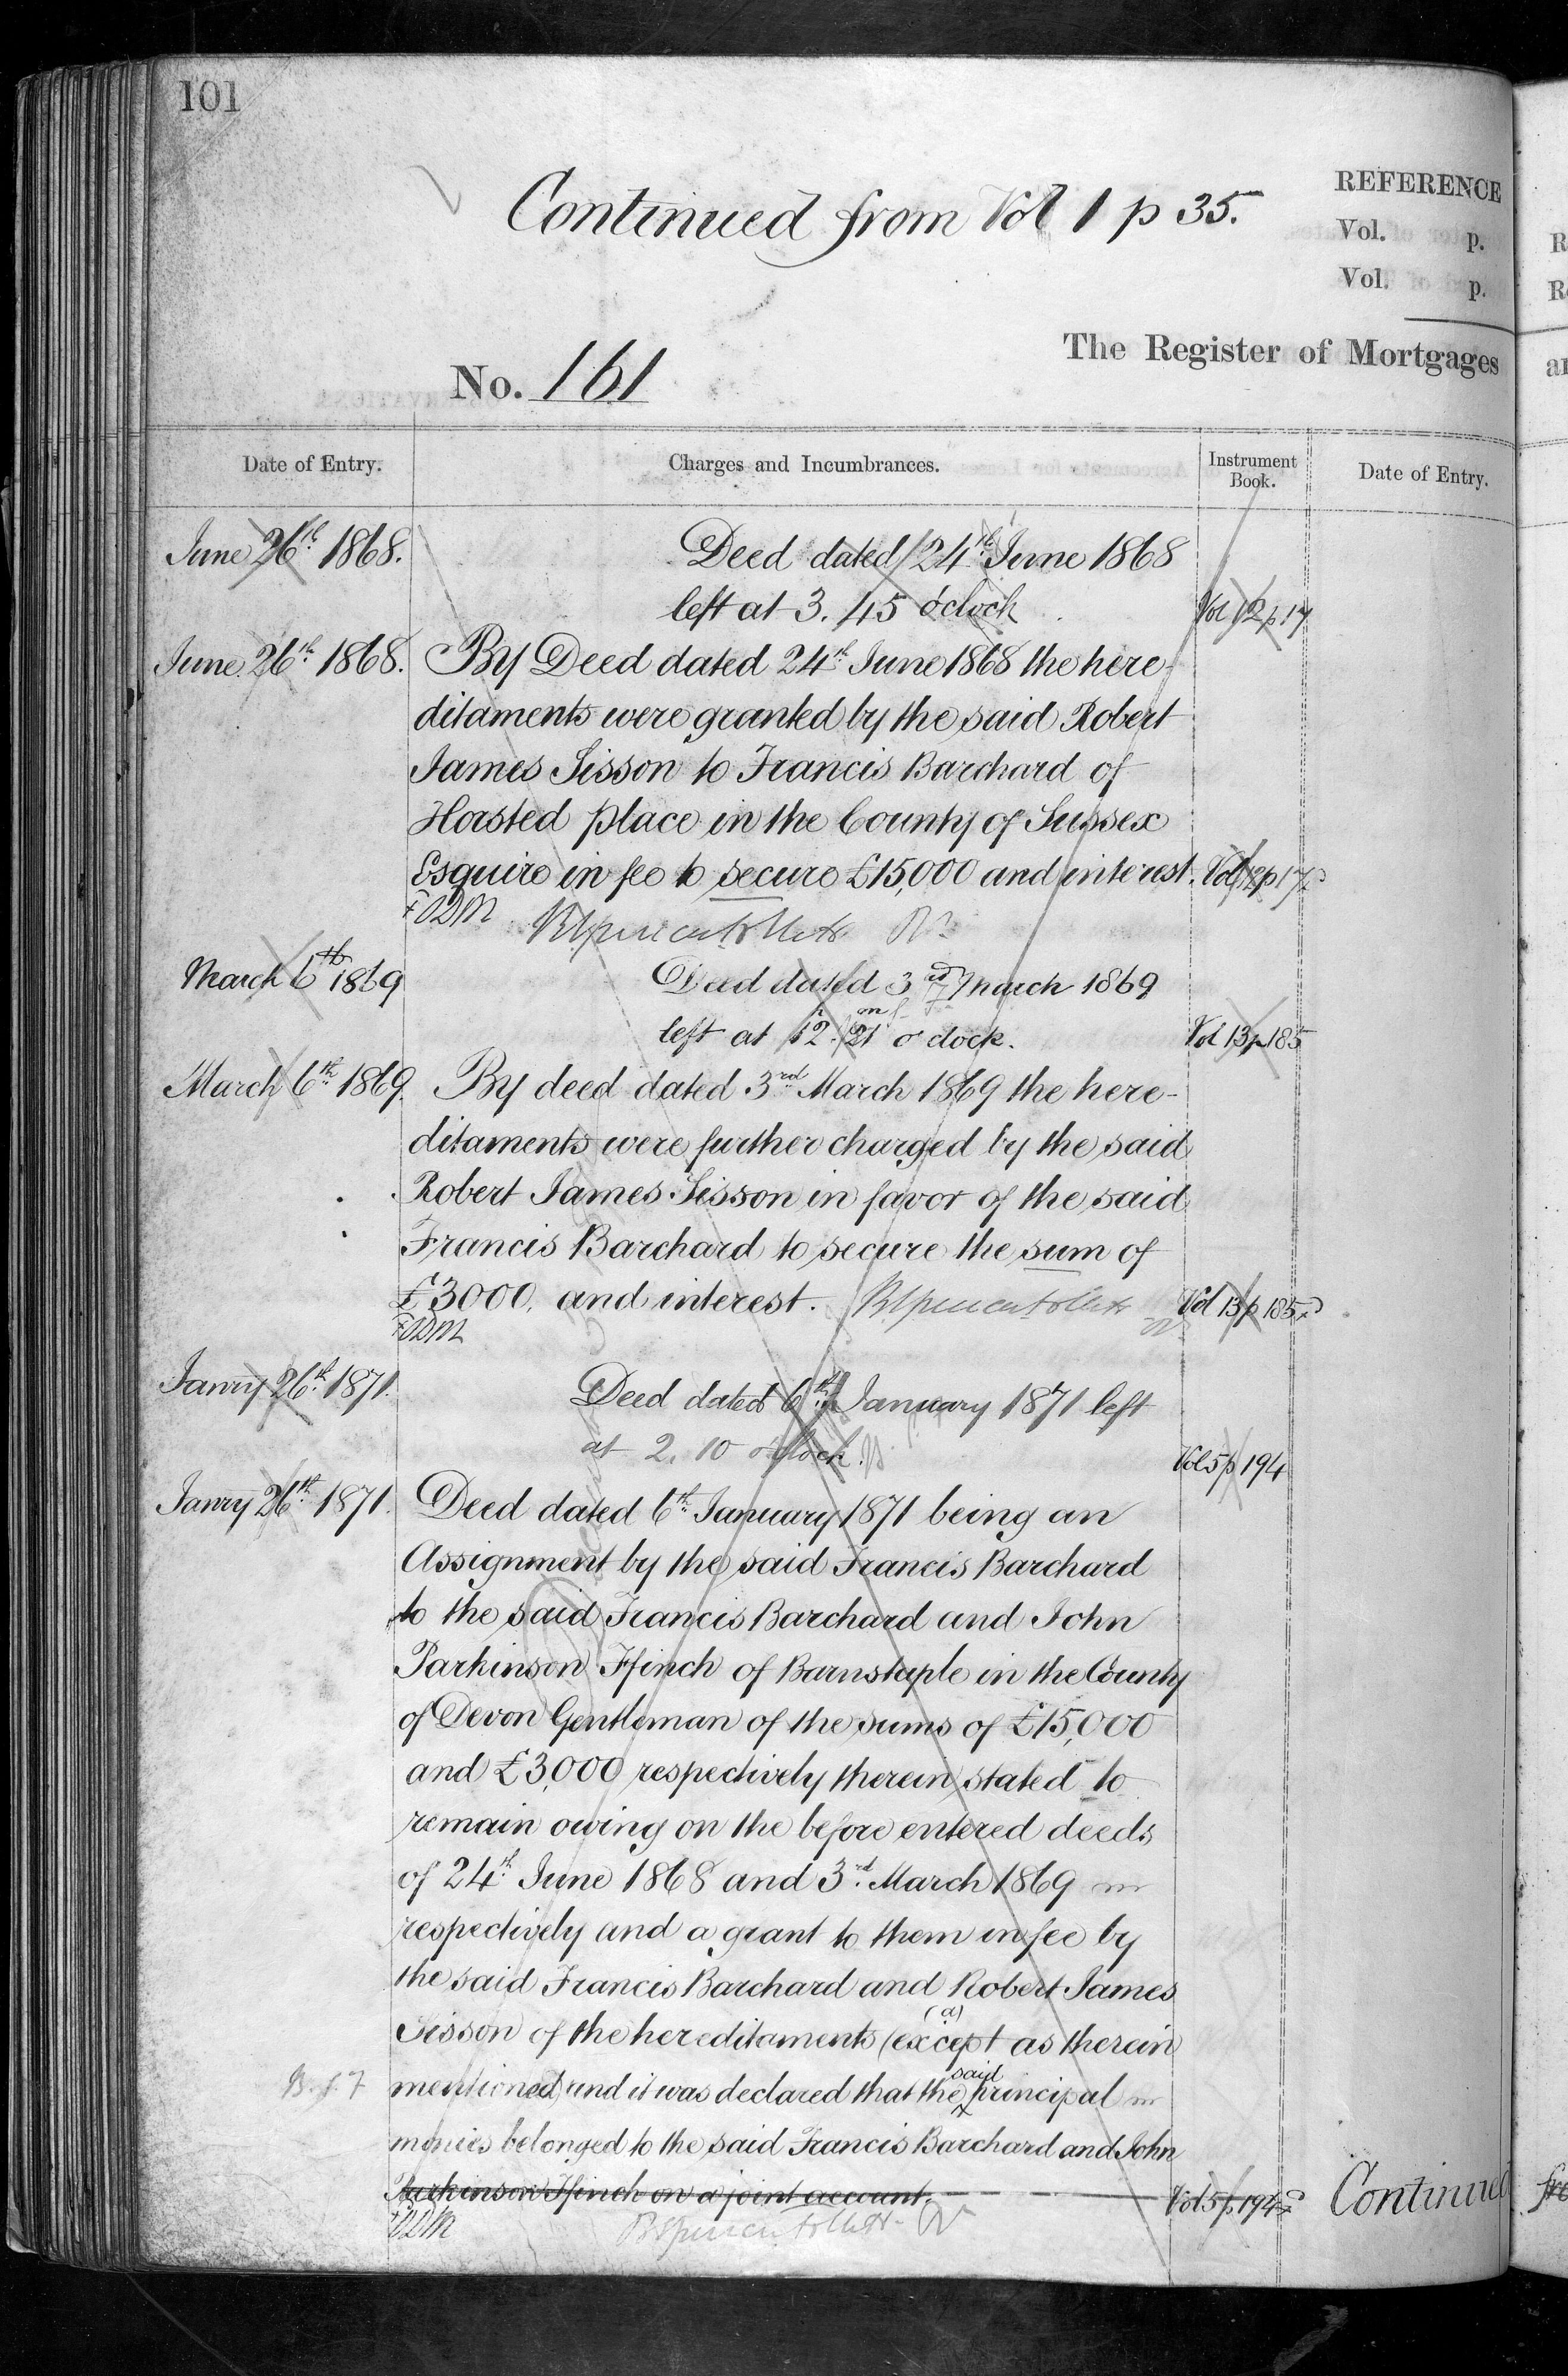 101
Continued from Vol 1 p 35.
REFERENCE
Vol. p.
Vol. p.
The Register of Mortgages
No. 161
Date of Entry. Charges and Incumbrances. Instrument Book. Date of Entry.
June 26th 1868. Deed dated 24th June 1868
left at 3. 45 o'clock Vol 12 p 17
June 26th 1868. By Deed dated 24th June 1868 the here-
ditaments were granted by the said Robert
James Sisson to Francis Barchard of
Horsted place in the County of Sussex
Esquire in fee to secure £15,000 and interest. Vol 12 p 17
March 6th 1869 Deed dated 3rd March 1869
left at 12. 21 o'clock. Vol 13 p 185
March 6th 1869. By deed dated 3rd March 1869 the here-
ditaments were further charged by the said
Robert James Sisson in favor of the said
Francis Barchard to secure the sum of
£3000, and interest. Vol 13 p 185
Janry 26th 1871. Deed dated 6th January 1871 left
at 2. 10 o'clock. Vol 5 p 194
Janry 26th 1871. Deed dated 6th January 1871 being an
Assignment by the said Francis Barchard
to the said Francis Barchard and John
Parkinson Ffinch of Barnstaple in the County
of Devon Gentleman of the sums of £15,000
and £3,000 respectively therein stated to
remain owing on the before entered deeds
of 24th June 1868 and 3rd March 1869
respectively and a grant to them in fee by
the said Francis Barchard and Robert James
Sisson of the hereditaments (except as therein
(a)
mentioned) and it was declared that the said principal
monies belonged to the said Francis Barchard and John
Parkinson Ffinch on a joint account. Vol 5 p 194
Continued